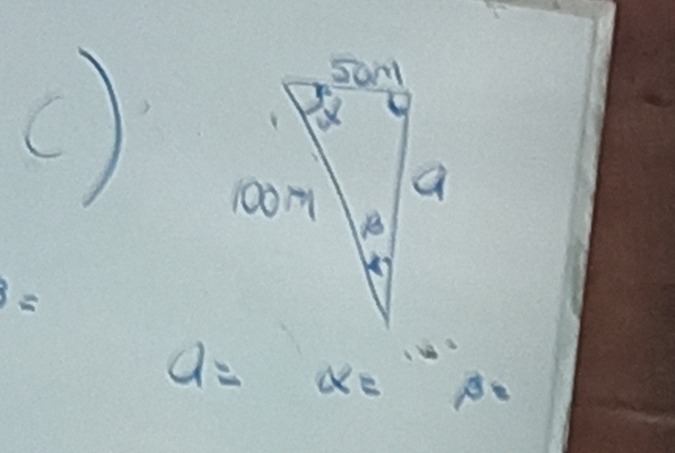 c)
50m
α
100m
a
β
β=
a= α= β=